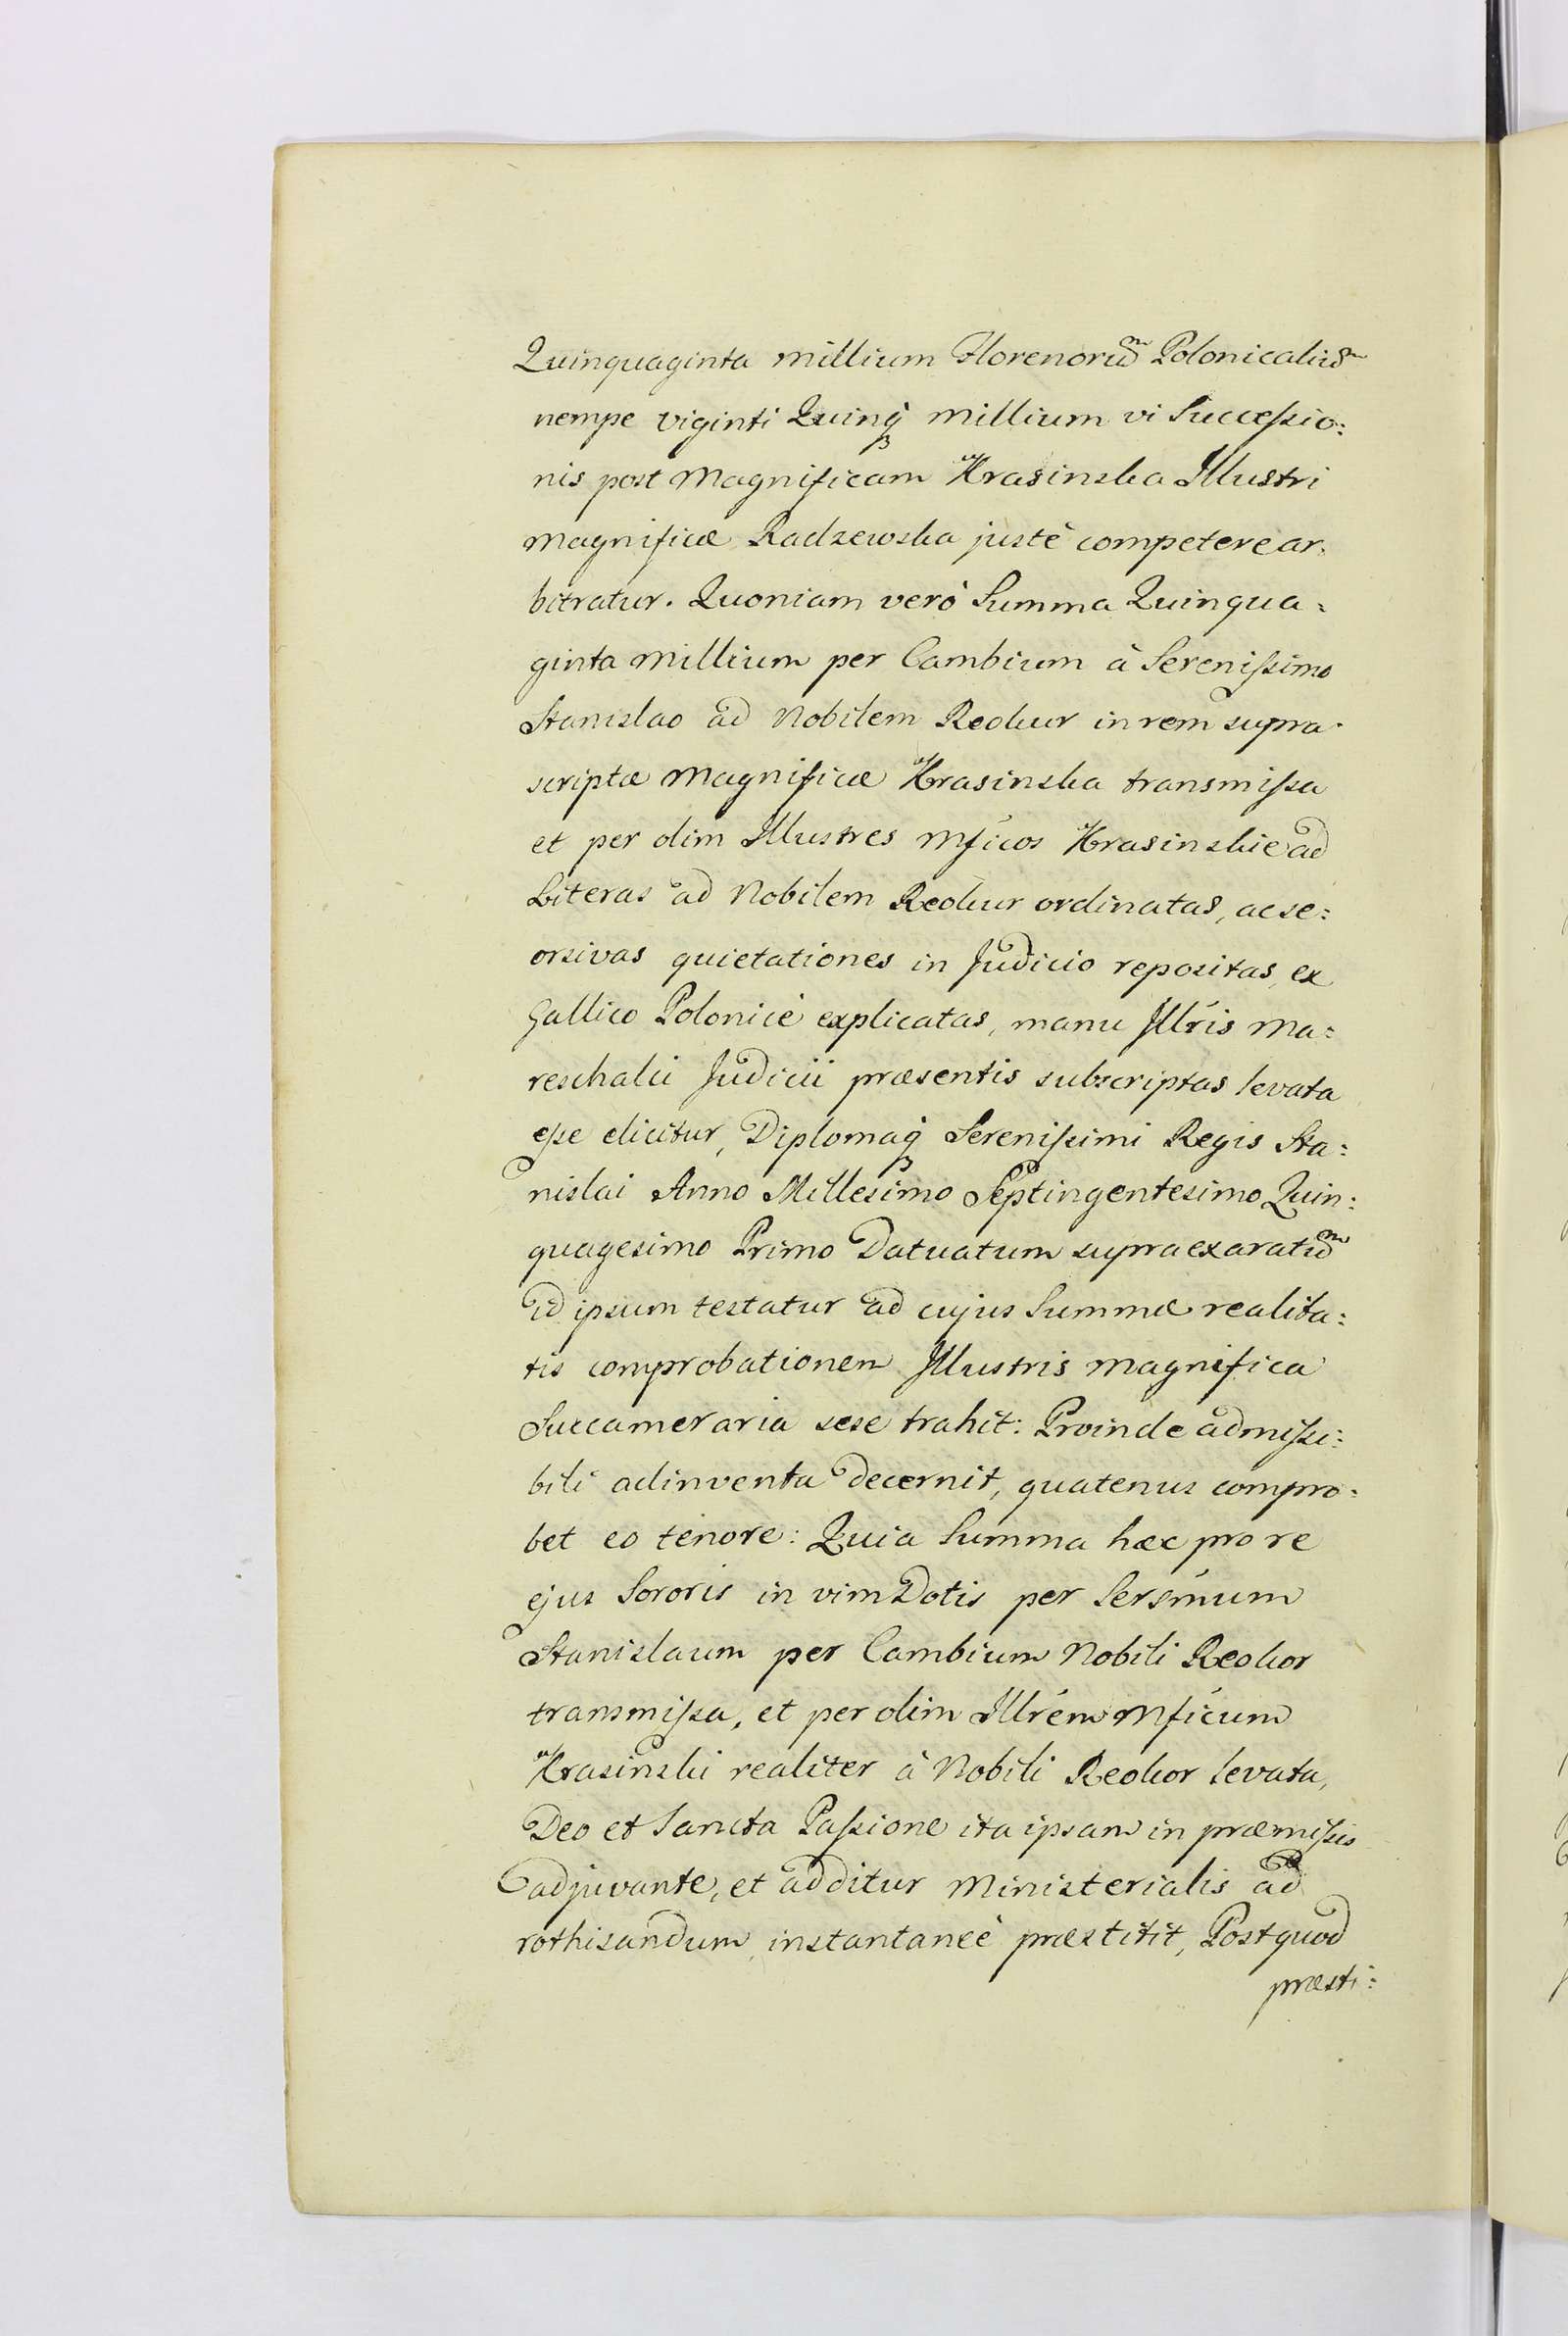 Quinquaginta millium Florenorũm Polonicaliũm
nempe viginti Quinq̃ millium vi Succeſsio:
nis post Magnificam Krasinska Illustri
Magnificæ Radzewska justè competere ar:
bitratur. Quoniam verò Summa Quinqua:
ginta millium per Cambium à Sereniſsimo
Stanislao ad Nobilem Reokur in rem supra
scriptæ Magnificæ Krasinska transmiſsa
et per olim Illustres Mficos Krasinskie ad
Literas ad Nobilem Reokur ordinatas, ac se:
orsivas quietationes in Judicio repositas, ex
Gallico Polonicè explicatas, manu Illris Ma:
reschalci Judicii præsentis subscriptas levata
eſse elicitur, Diplomaq̃ Sereniſsimi Regis Sta:
nislai Anno Millesimo Septingentesimo Quin:
quagesimo Primo Datuatum supraexaratũm
id ipsum testatur ad cujus Summæ realita:
tis comprobationem Illustris Magnifica
Succameraria sese trahit: Proinde admiſsi:
bili adinventa decernit, quatenus compro:
bet eo tenore: Quia Summa hæc pro re
ejus Sororis in vim Dotis per Sersmum
Stanislaum per Cambium Nobili Reokor
transmiſsa, et per olim Illrem Mficum
Krasinski realiter à Nobili Reokor levata,
Deo et Sancta Paſsione ita ipsam in præmiſsis
adjuvante, et additur Ministerialis ad
rothisandum, instantaneè præstitit, Postquod
præsti: